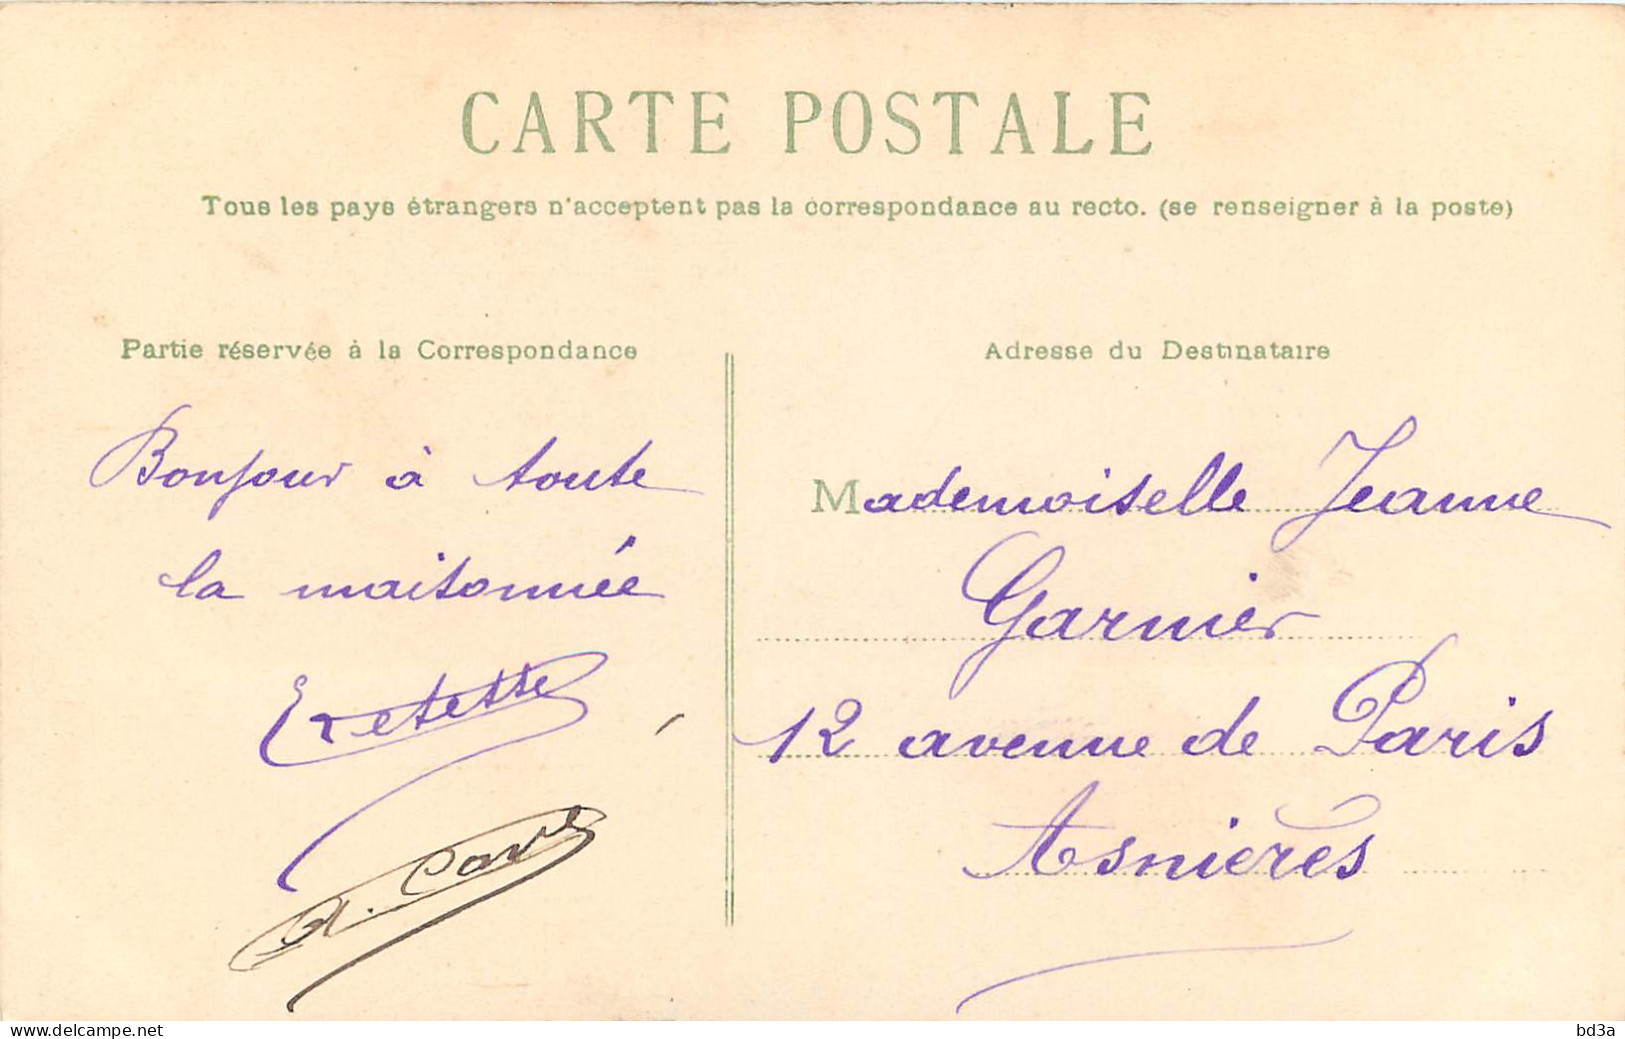 CARTE POSTALE
Tous les pays étrangers n'acceptent pas la correspondance au recto. (se renseigner à la poste)
Partie réservée à la Correspondance
Bonjour à toute
la maisonnée
Adresse du Destinataire
Mademoiselle Jeanne
Garnier
12 avenue de Paris
Asnières
www.delcampe.net
bd3a